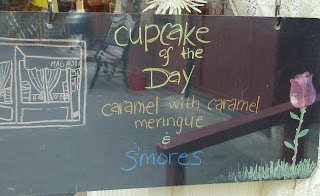 MAGNOLIA
cupcake
of the
Day
caramel with caramel
meringue
&
S'mores